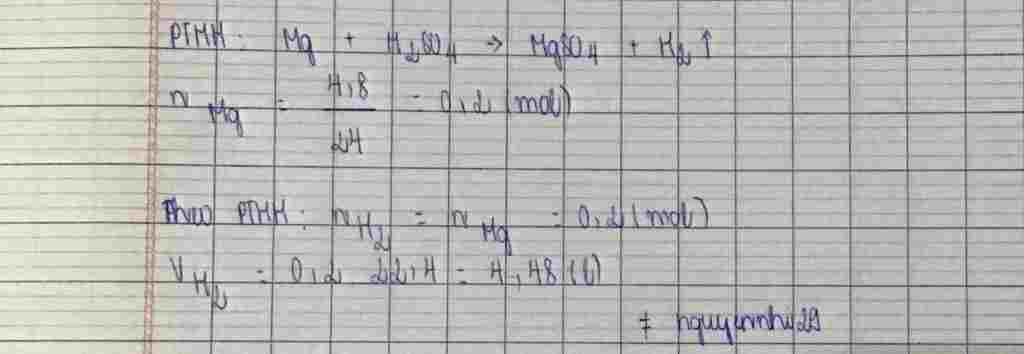 PTHH: Mg + H₂SO₄ → MgSO₄ + H₂ ↑
n Mg = 4,8 / 24 = 0,2 (mol)
Theo PTHH: n H₂ = n Mg = 0,2 (mol)
V H₂ = 0,2 . 22,4 = 4,48 (l)
# nguyennhu29